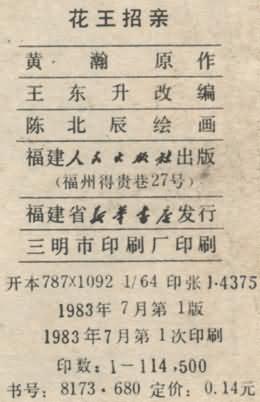 花王招亲
黄瀚原作
王东升改编
陈北辰绘画
福建人民出版社出版
(福州得贵巷27号)
福建省新华书店发行
三明市印刷厂印刷
开本787×1092 1/64 印张1.4375
1983年7月第1版
1983年7月第1次印刷
印数:1—114,500
书号:8173·680 定价:0.14元